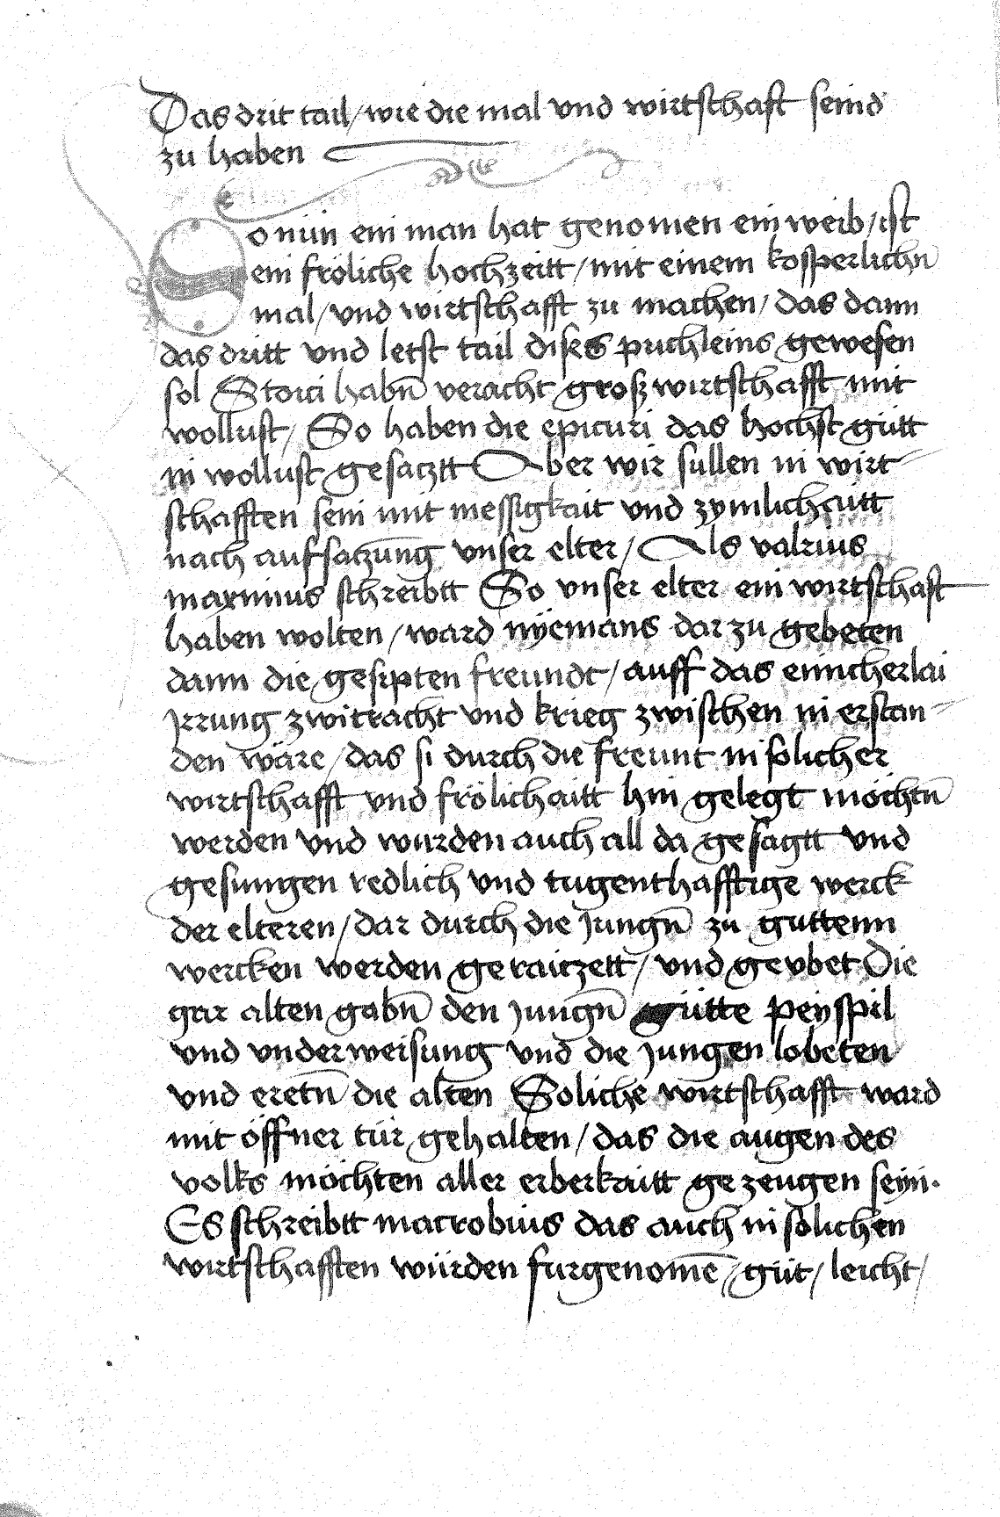 Das drit tail / wie die mal vnd wirtschaft seind
zu haben
So nün ein man hat genomen ein weib / ist
ein fröliche hochzeitt / mit einem kosperlichn̄
mal / vnd wirtschafft zu machen / das dann
das dritt vnd letst tail dises püchleins gewesen
sol Stoici habn̄ veracht groß wirtschafft mit
wollust / So haben die epicuri das hochst gütt
in wollust gesatztt Aber wir sullen in wirt
schafften sein mit messigkait vnd zymlichaitt
nach aufsatzung vnser elter / Als valrius
maximus schreibtt So vnser elter ein wirtschaft
haben wolten / ward nyemans dar zu gebeten
dann die gesipten freundt / auff das einicherlai
jrrung zwitracht vnd krieg zwischen in erstan
den wäre / das si durch die freunt in solicher
wirtschafft vnd frölichaitt hin gelegt möchtn̄
werden vnd wurden auch all da gesagtt vnd
gesungen redlich vnd tugenthafftige werck
der elteren / dar durch die jungn̄ zu guttenn
wercken werden geraitzett / vnd geubet Die
gar alten gabn̄ den jungn̄ gütte peyspil
vnd vnderweisung vnd die jungen lobeten
vnd eretn̄ die alten Soliche wirtschafft ward
mit offner tür gehalten / das die augen des
volks möchten aller erberkaitt gezeugen seyn.
Es schreibtt macrobius das auch in solichen
wirtschafften würden furgenomē / güt / leicht /